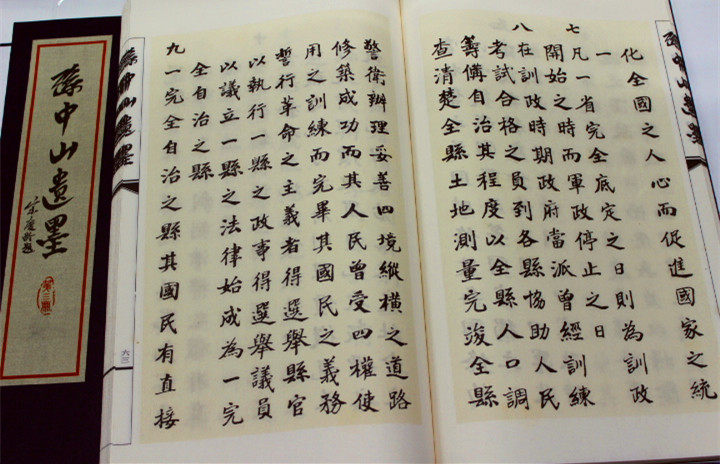 孫中山遺墨
化全國之人心而促進國家之統
一
七 凡一省完全底定之日則為訓政
開始之時而軍政停止之日
八 在訓政時期政府當派曾經訓練
考試合格之員到各縣協助人民
籌備自治其程度以全縣人口調
查清楚全縣土地測量完竣全縣
警衛辦理妥善四境縱橫之道路
修築成功而其人民曾受四權使
用之訓練而完畢其國民之義務
誓行革命之主義者得選舉縣官
以執行一縣之政事得選舉議員
以議立一縣之法律始成為一完
全自治之縣
九 一完全自治之縣其國民有直接
孫中山遺墨
六三
孫中山遺墨